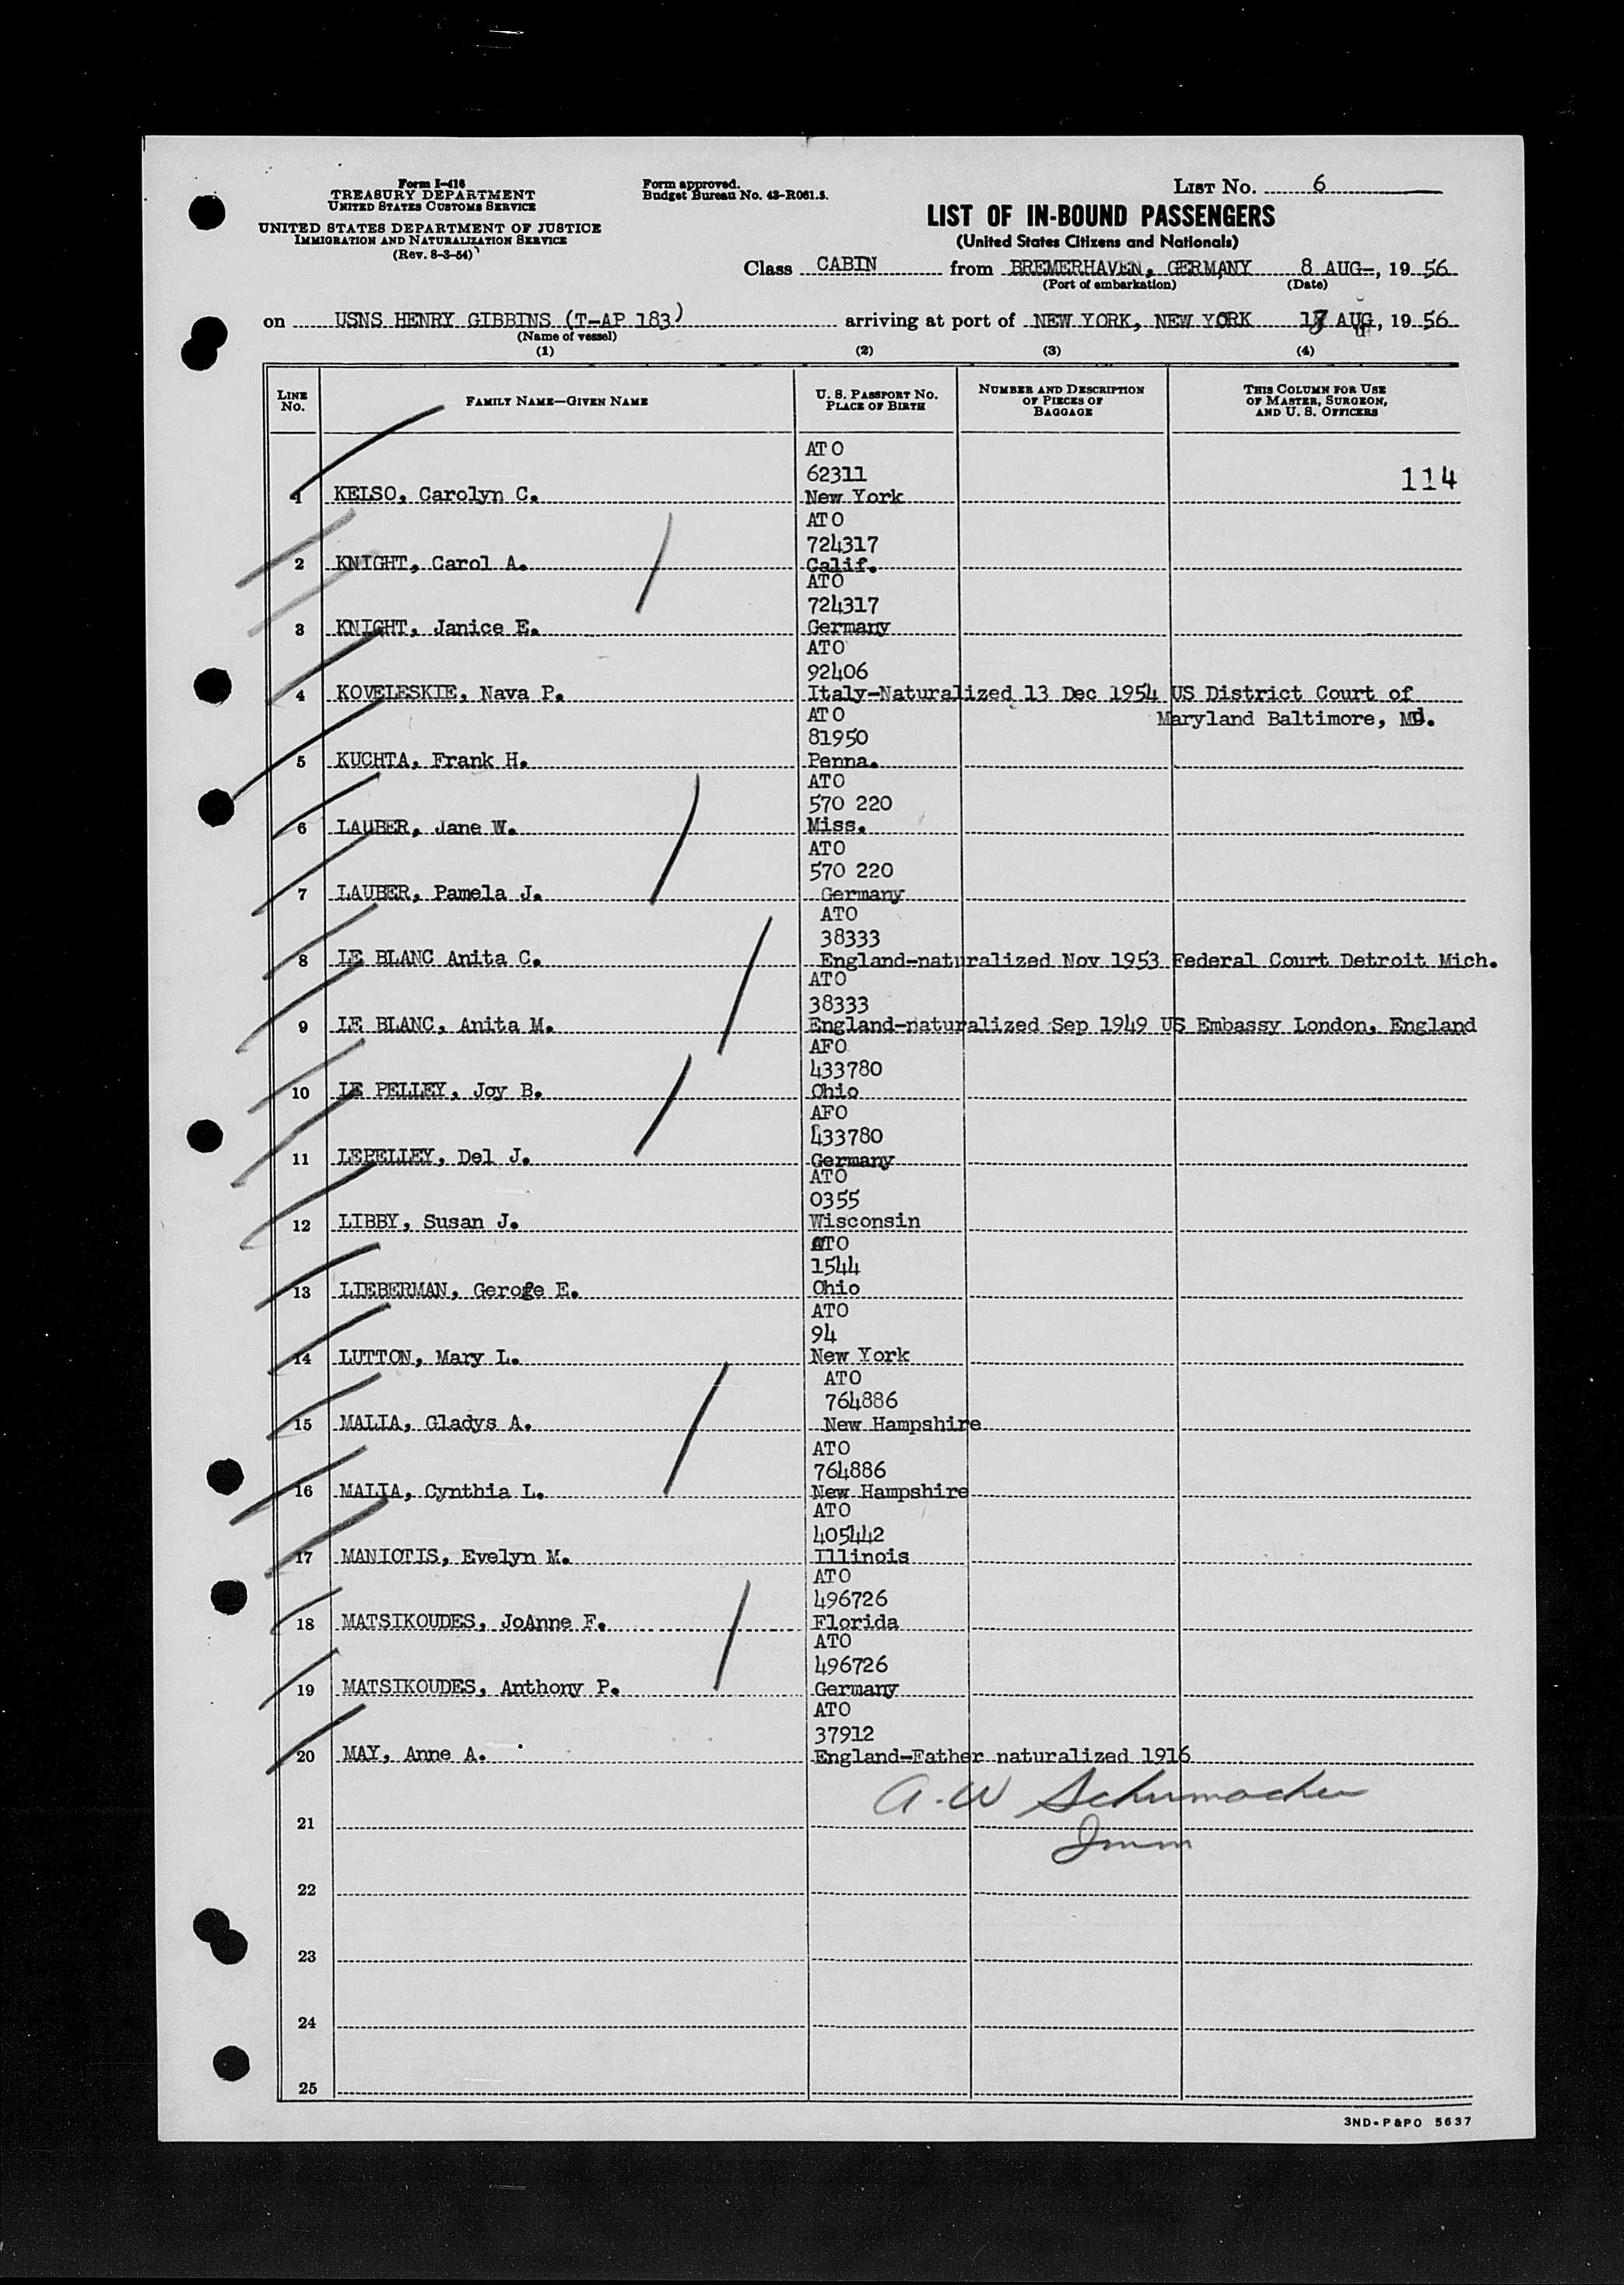 Form I-416
TREASURY DEPARTMENT
UNITED STATES CUSTOMS SERVICE
UNITED STATES DEPARTMENT OF JUSTICE
IMMIGRATION AND NATURALIZATION SERVICE
(Rev. 8-3-54)
Form approved.
Budget Bureau No. 43-R061.5.
LIST No. 6
LIST OF IN-BOUND PASSENGERS
(United States Citizens and Nationals)
Class CABIN from BREMERHAVEN, GERMANY 8 AUG-, 19 56
(Port of embarkation) (Date)
on USNS HENRY GIBBINS (T-AP 183) arriving at port of NEW YORK, NEW YORK AUG, 19 56
(Name of vessel)
(1) (2) (3) (4)
LINE No. FAMILY NAME—GIVEN NAME U. S. PASSPORT No. PLACE OF BIRTH NUMBER AND DESCRIPTION OF PIECES OF BAGGAGE THIS COLUMN FOR USE OF MASTER, SURGEON, AND U. S. OFFICERS
ATO
62311 114
1 KELSO, Carolyn C. New York
ATO
724317
2 KNIGHT, Carol A. Calif.
ATO
724317
3 KNIGHT, Janice E. Germany
ATO
92406
4 KOVELESKIE, Nava P. Italy-Naturalized 13 Dec 1954 US District Court of
ATO Maryland Baltimore, Md.
81950
5 KUCHTA, Frank H. Penna.
ATO
570 220
6 LAUBER, Jane W. Miss.
ATO
570 220
7 LAUBER, Pamela J. Germany
ATO
38333
8 LE BLANC Anita C. England-naturalized Nov 1953 Federal Court Detroit Mich.
ATO
38333
9 LE BLANC, Anita M. England-naturalized Sep 1949 US Embassy London, England
AFO
433780
10 LE PELLEY, Joy B. Ohio
AFO
433780
11 LEPELLEY, Del J. Germany
ATO
0355
12 LIBBY, Susan J. Wisconsin
ATO
1544
13 LIEBERMAN, Geroge E. Ohio
ATO
94
14 LUTTON, Mary L. New York
ATO
764886
15 MALIA, Gladys A. New Hampshire
ATO
764886
16 MALIA, Cynthia L. New Hampshire
ATO
405442
17 MANIOTIS, Evelyn M. Illinois
ATO
496726
18 MATSIKOUDES, JoAnne F. Florida
ATO
496726
19 MATSIKOUDES, Anthony P. Germany
ATO
37912
20 MAY, Anne A. England-Father naturalized 1916
A.W Schumacher
21
Imm
22
23
24
25
3ND-P&PO 5637